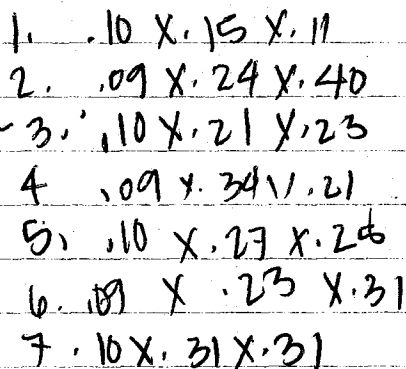 1. .10 X .15 X .11
2. .09 X .24 X .40
3. .10 X .21 X .23
4 .09 X .34 X .21
5. .10 X .27 X
6. .09 X .23 X .31
7 .10 X .31 X .31